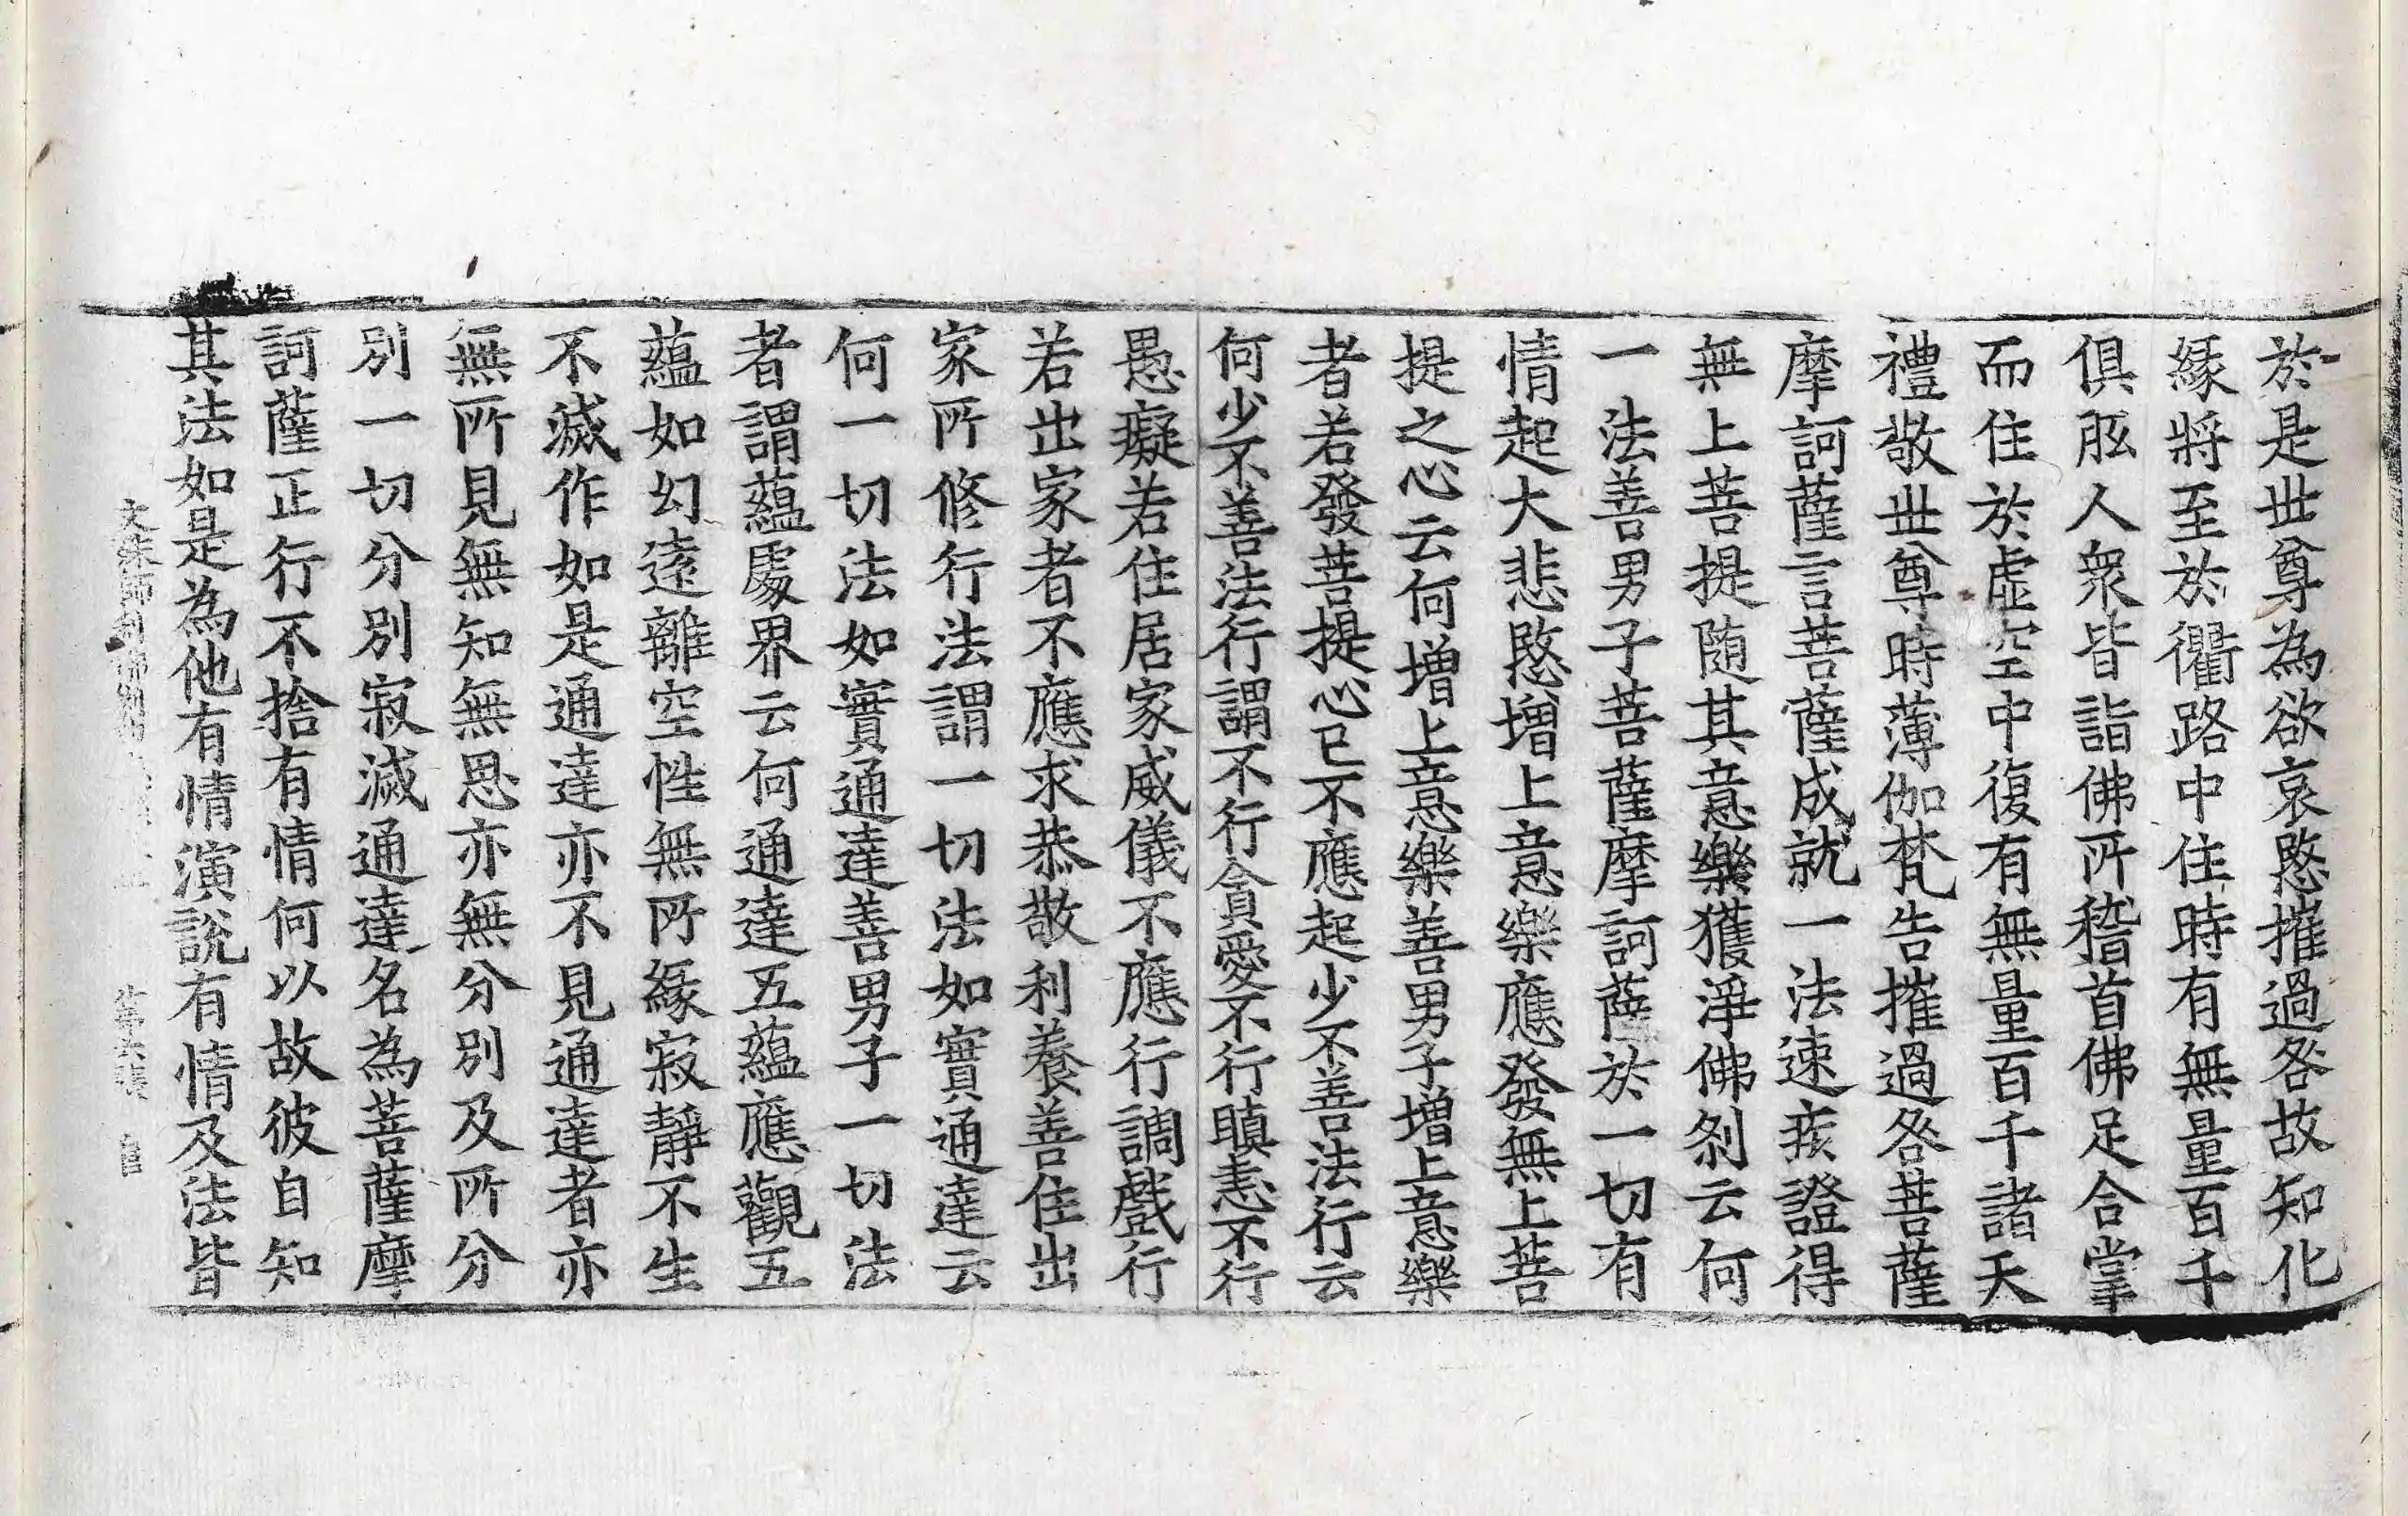 於是世尊為欲哀愍摧過咎故知化
緣將至於衢路中住時有無量百千
俱胝人衆皆詣佛所稽首佛足合掌
而住於虛空中復有無量百千諸天
禮敬世尊時薄伽梵告摧過咎菩薩
摩訶薩言菩薩成就一法速疾證得
無上菩提随其意樂獲淨佛刹云何
一法善男子菩薩摩訶薩於一切有
情起大悲愍增上意樂應發無上菩
提之心云何增上意樂善男子增上意樂
者若發菩提心已不應起少不善法行云
何少不善法行謂不行貪愛不行瞋恚不行
愚癡若住居家威儀不應行調戲行
若出家者不應求恭敬利養善住出
家所修行法謂一切法如實通達云
何一切法如實通達善男子一切法
者謂蘊處界云何通達五蘊應觀五
蘊如幻遠離空性無所緣寂靜不生
不滅作如是通達亦不見通達者亦
無所見無知無思亦無分別及所分
別一切分別寂滅通達名為菩薩摩
訶薩正行不捨有情何以故彼自知
其法如是為他有情演說有情及法皆
文殊師利